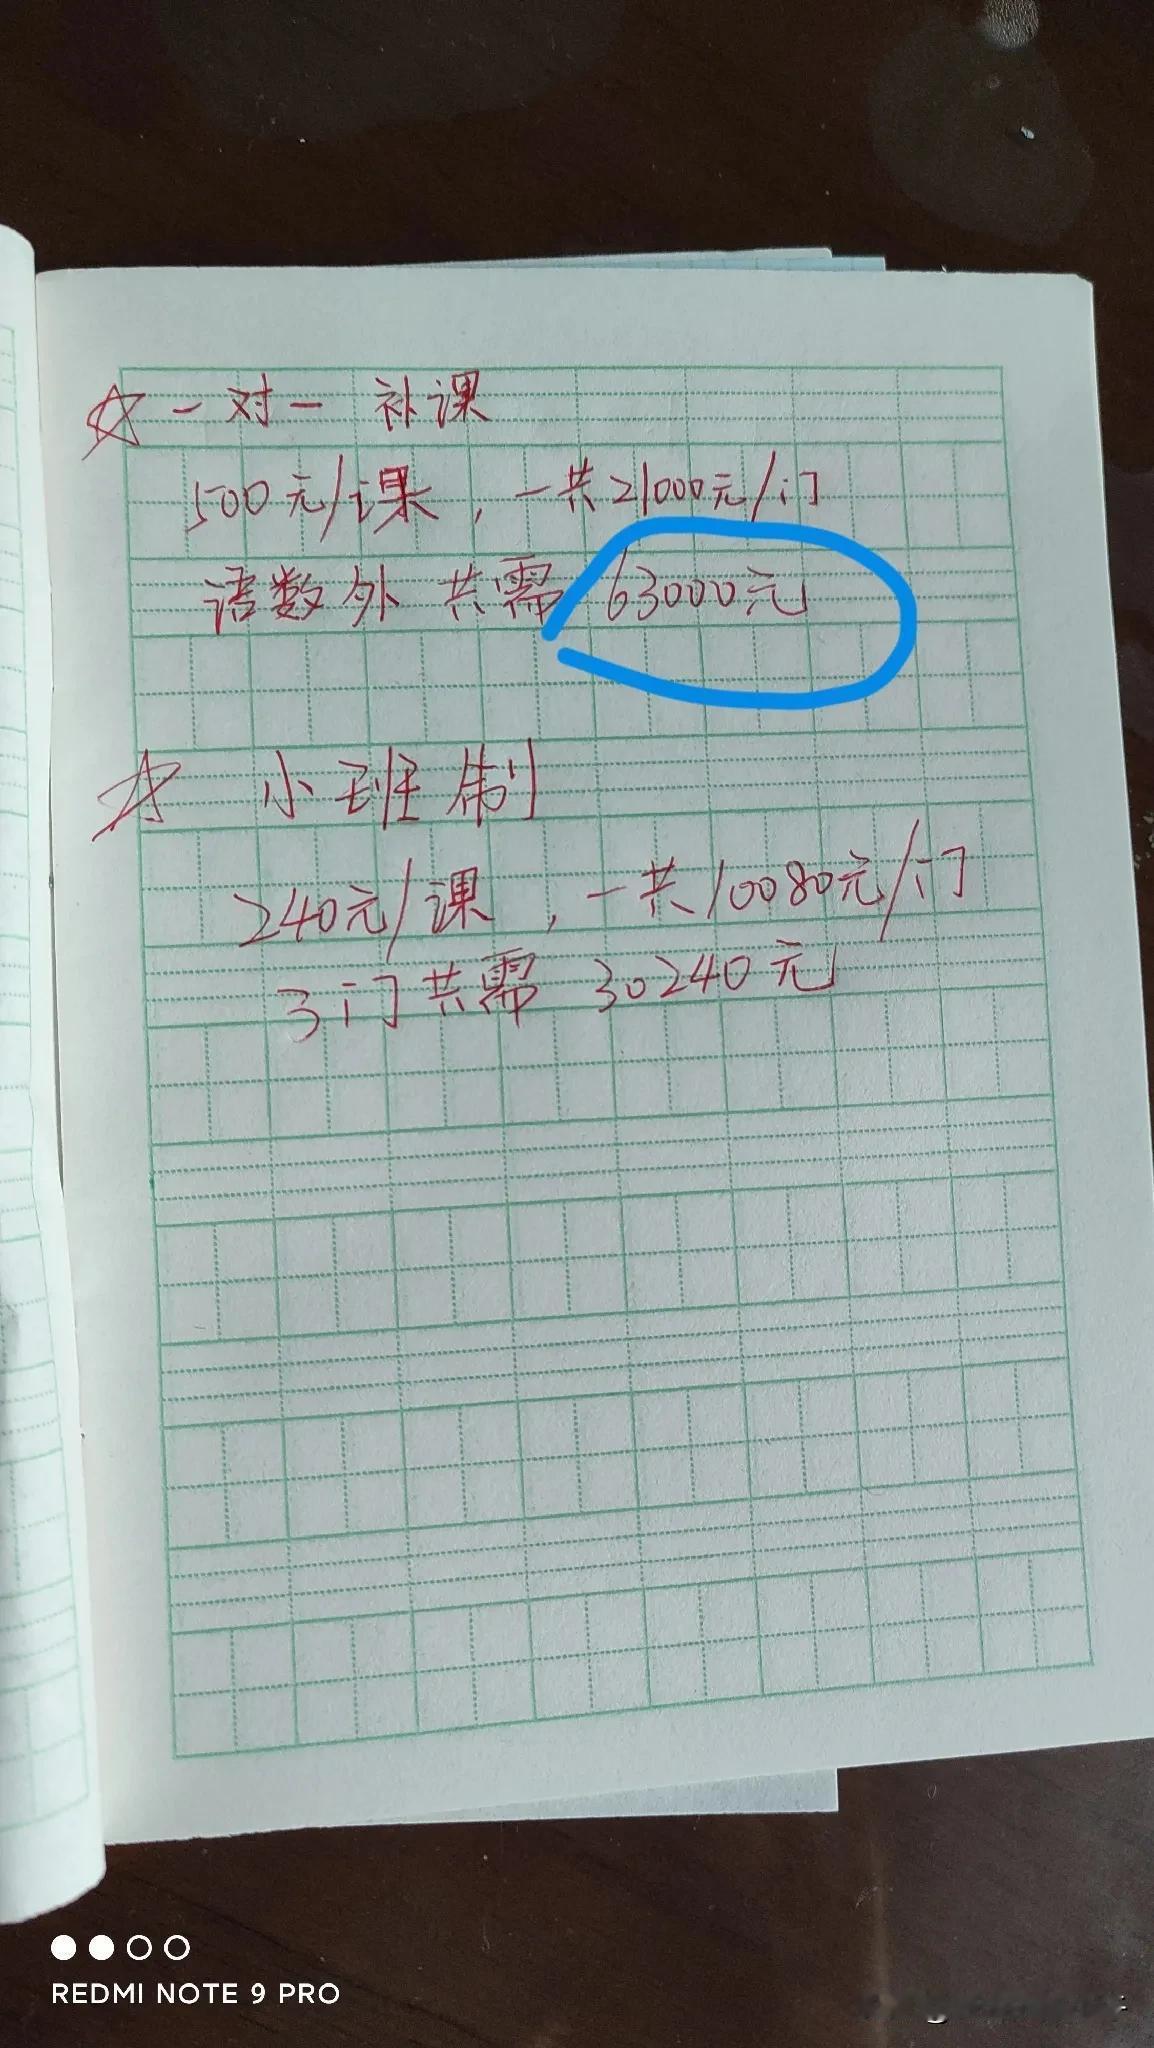 ☆ 一对一 补课
500元/课，一共21000元/门
语数外 共需 63000元
☆ 小班制
240元/课，一共10080元/门
3门共需 30240元
REDMI NOTE 9 PRO